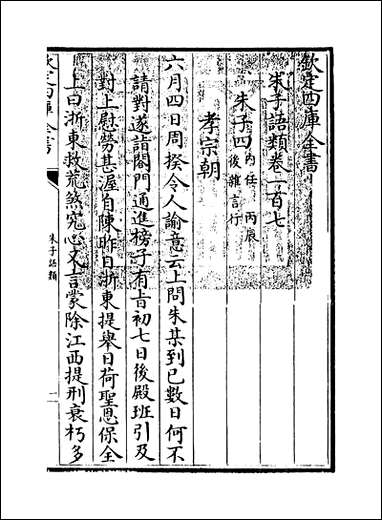 欽定四庫全書
朱子語類卷一百七
朱子四 內任 丙辰後雜言行
孝宗朝
六月四日周揆令人諭意云上問朱某到已數日何不
請對遂詣閤門通進榜子有旨初七日後殿班引及
對上慰勞甚渥自陳昨日浙東提舉日荷聖恩保全
上曰浙東救荒煞究心又言蒙除江西提刑衰朽多
欽定四庫全書
朱子語類
一